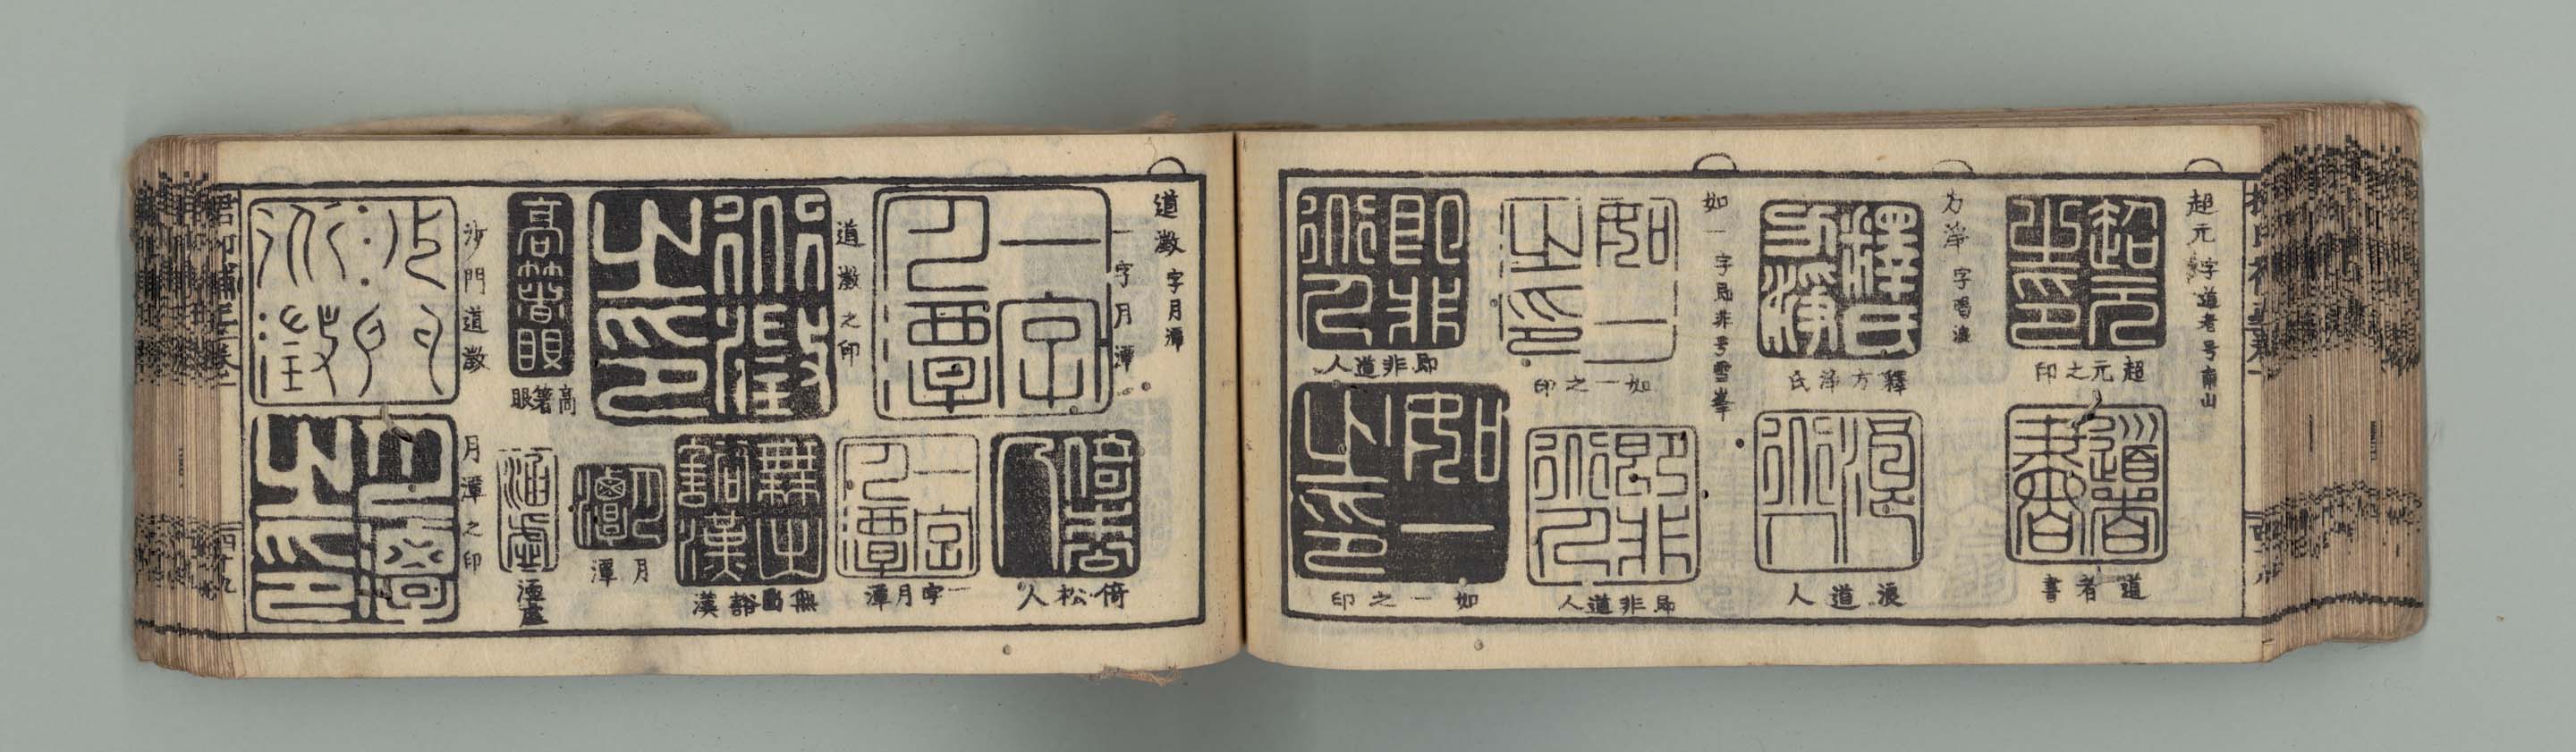 超元 字道者号南山
超元之印
道者書
方淨 字唱浪
釋方淨氏
浪道人
如一 字即非号雪峯
如一之印
即非道人
即非道人
如一之印
道澂 字月潭
一字月潭
倚松人
一字月潭
道澂之印
無出豁漢
月潭
高著眼
沙門道澂
月潭之印
四十九